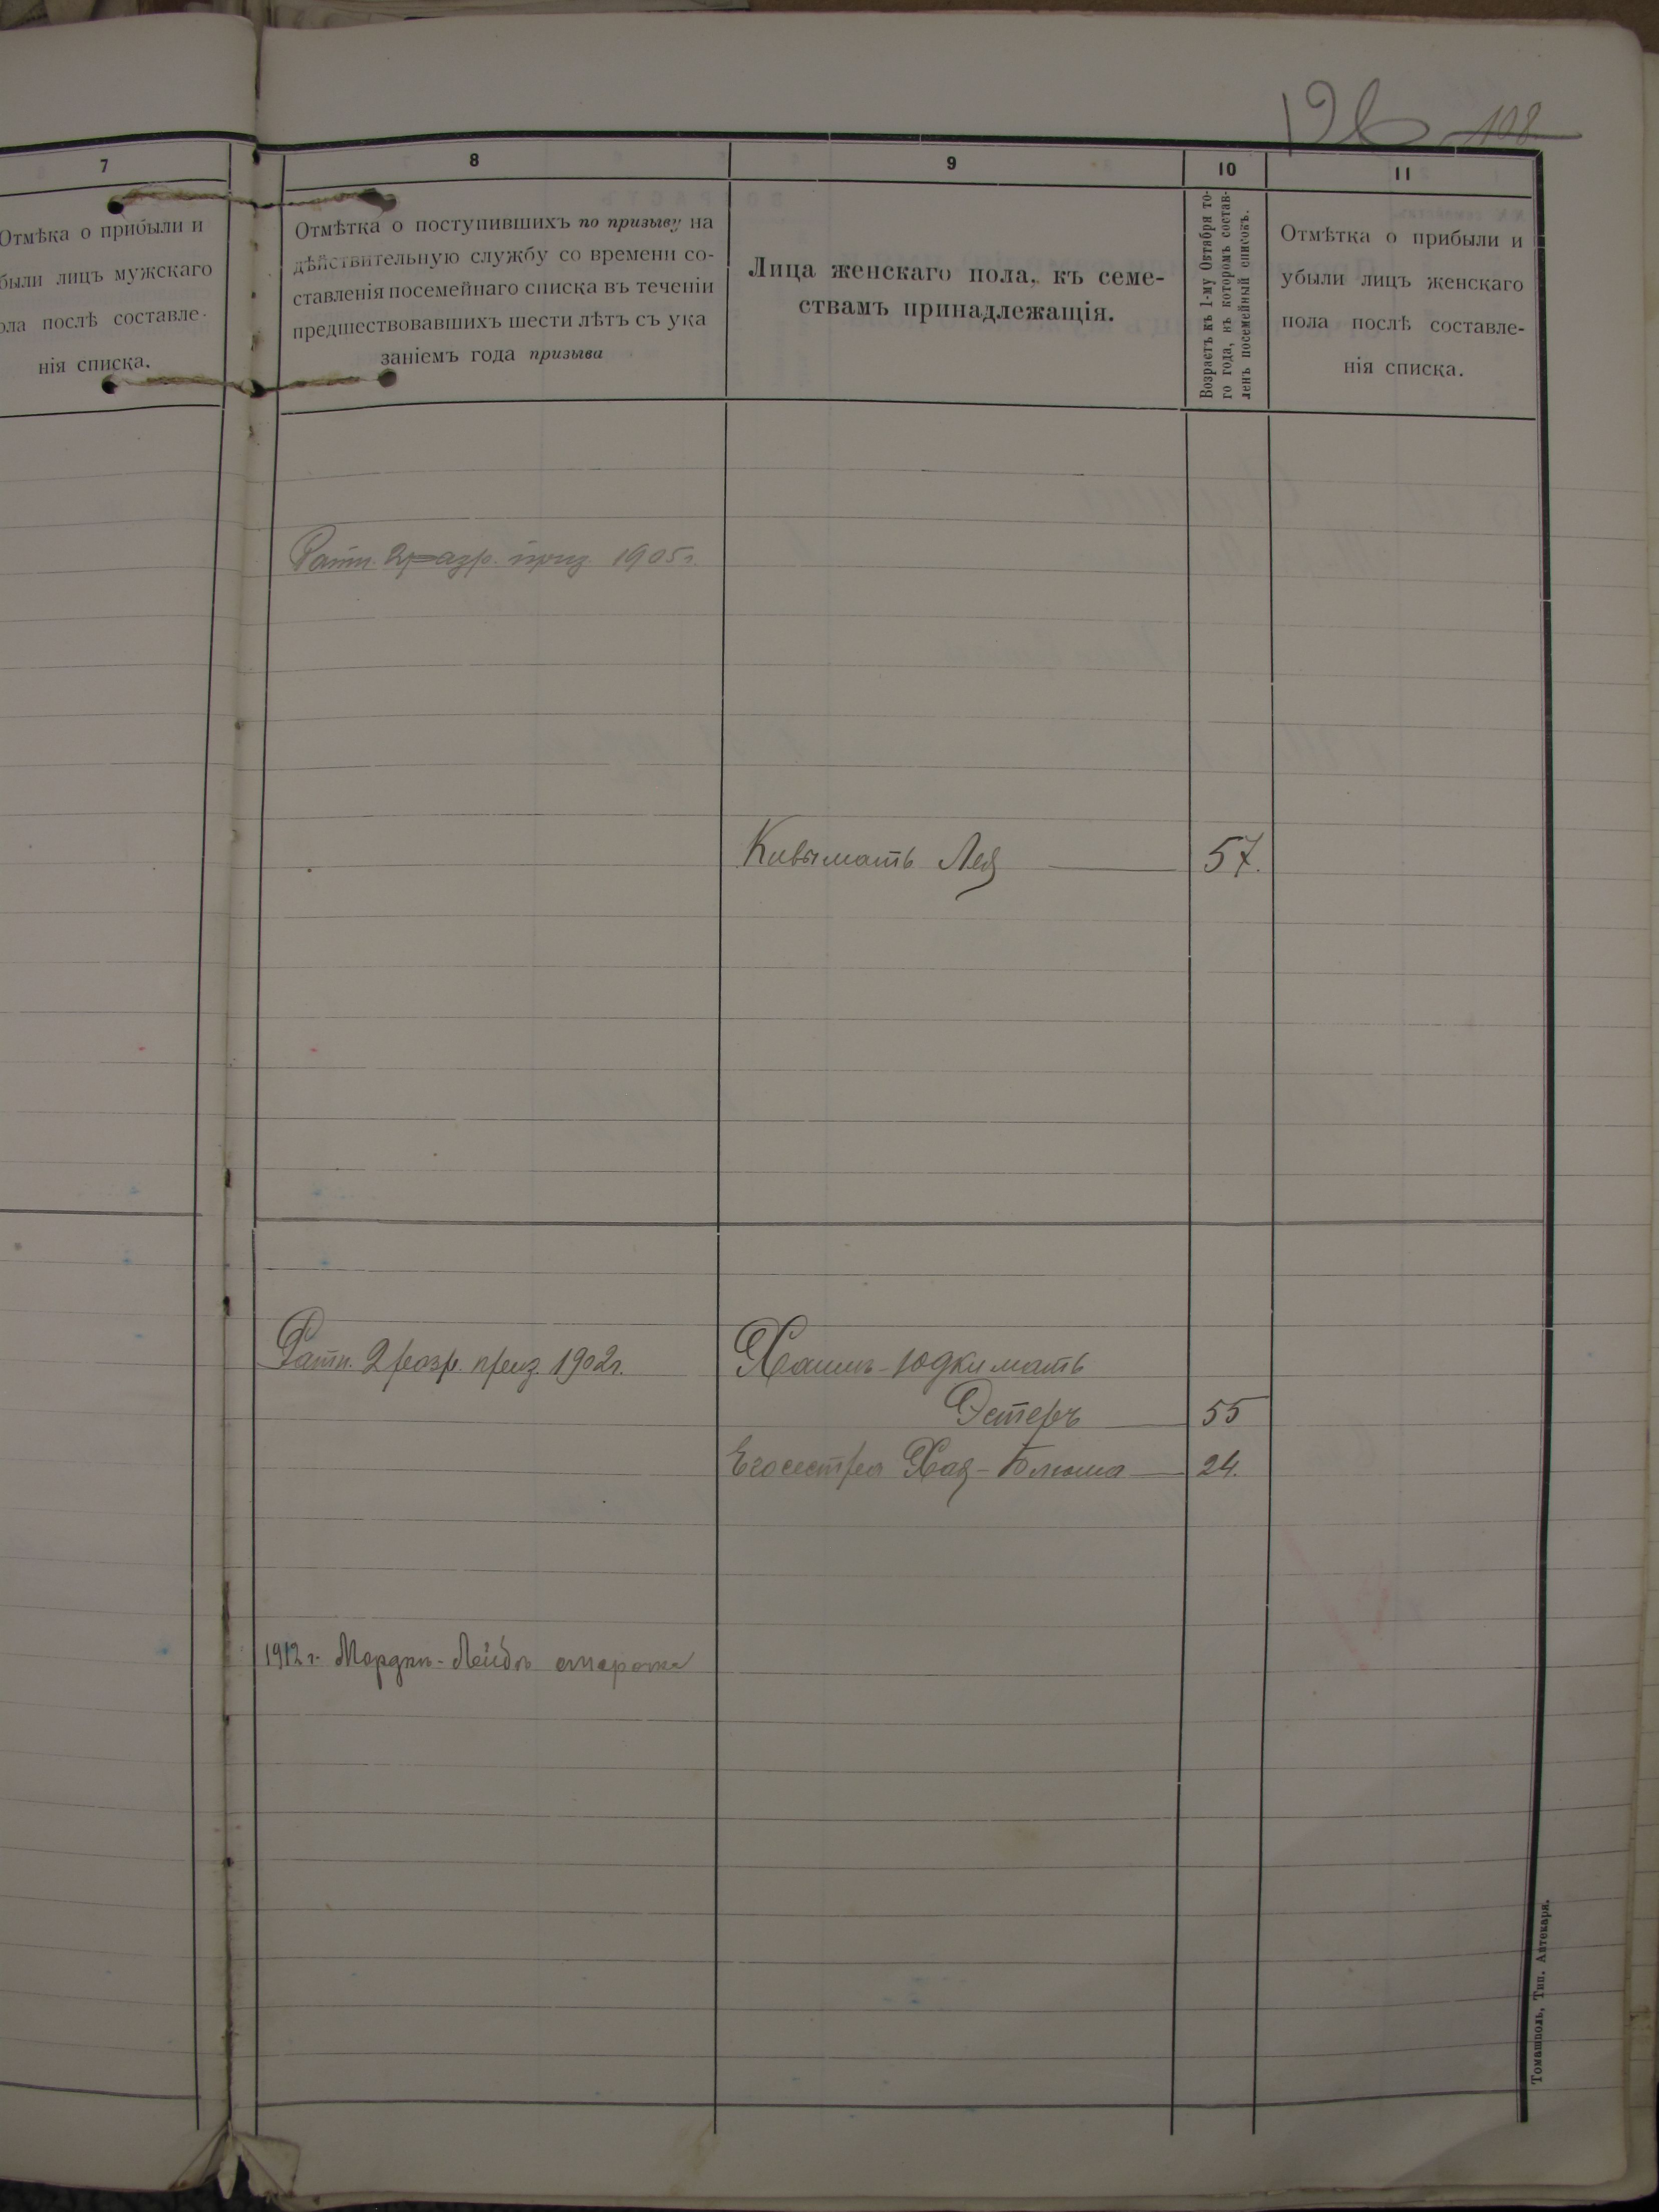 126 108
7
Отмѣка о прибыли и
были лицъ мужскаго
ола послѣ составле-
нія списка.
8
Отмѣтка о поступившихъ по призыву на
дѣйствительную службу со времени со-
ставленія посемейнаго списка въ теченіи
предшествовавшихъ шести лѣтъ съ ука
заніемъ года призыва
9
Лица женскаго пола, къ семе-
ствамъ принадлежащія.
10
Возрастъ къ 1-му Октября то-
го года, въ которомъ состав-
ленъ посемейный списокъ.
11
Отмѣтка о прибыли и
убыли лицъ женскаго
пола послѣ составле-
нія списка.
Ратн. 2 разр. приз. 1905 г.
Кивы мать Лея 57.
Ратн. 2 разр. приз. 1902 г.
Хаимъ-Юдки мать
Эстеръ 55
Его сестра Хая-Блюма 24.
1912 г. Мордко-Лейбъ
Томашполь, Тип. Аптекаря.